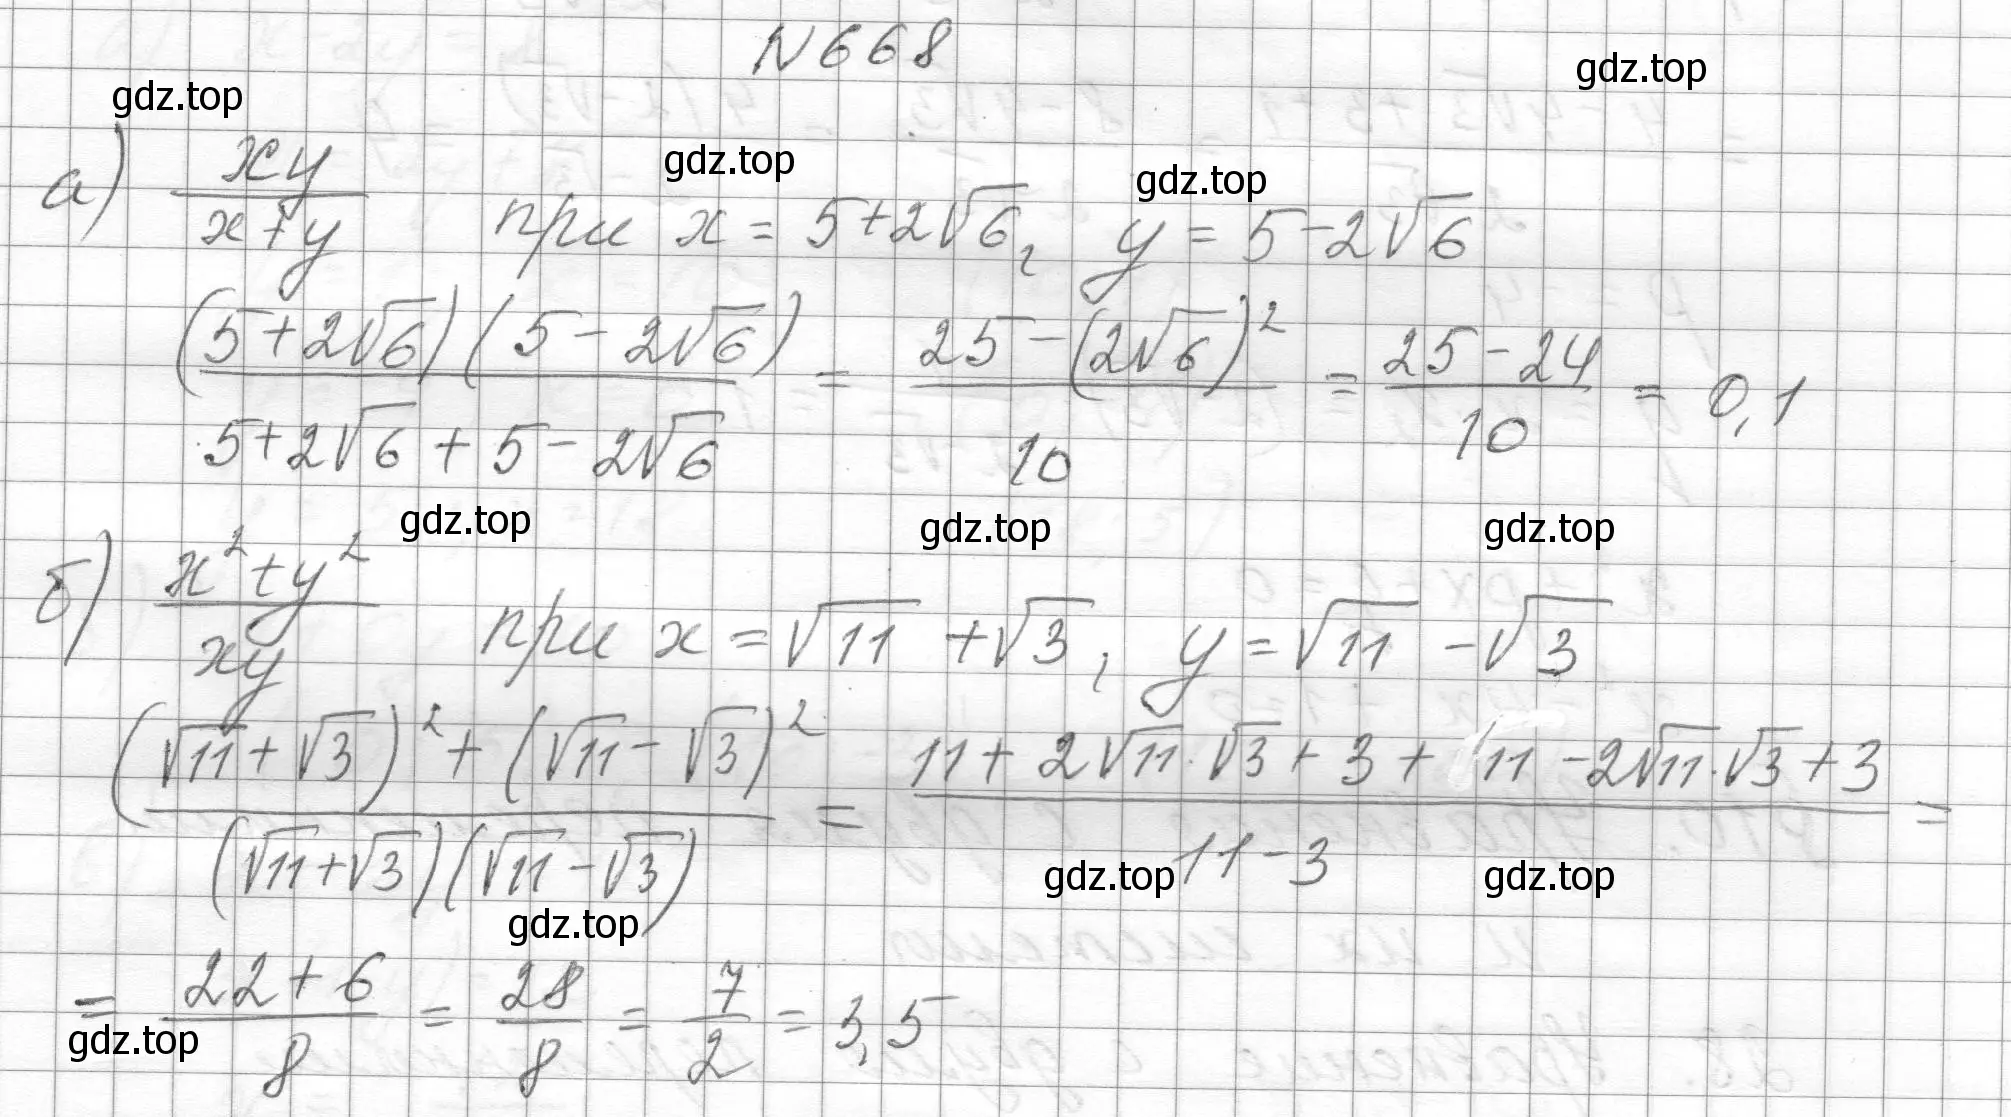 N668
gdz.top
gdz.top
а) xy/(x+y) при x = 5+2√6, y = 5-2√6
gdz.top
gdz.top
((5+2√6)(5-2√6))/(5+2√6+5-2√6) = (25-(2√6)²)/10 = (25-24)/10 = 0,1
gdz.top
gdz.top
gdz.top
б) (x²+y²)/(xy) при x = √11 + √3; y = √11 - √3
((√11+√3)²+(√11-√3)²)/((√11+√3)(√11-√3)) = (11+2√11·√3+3+11-2√11·√3+3)/(11-3) =
gdz.top
gdz.top
gdz.top
= (22+6)/8 = 28/8 = 7/2 = 3,5
gdz.top